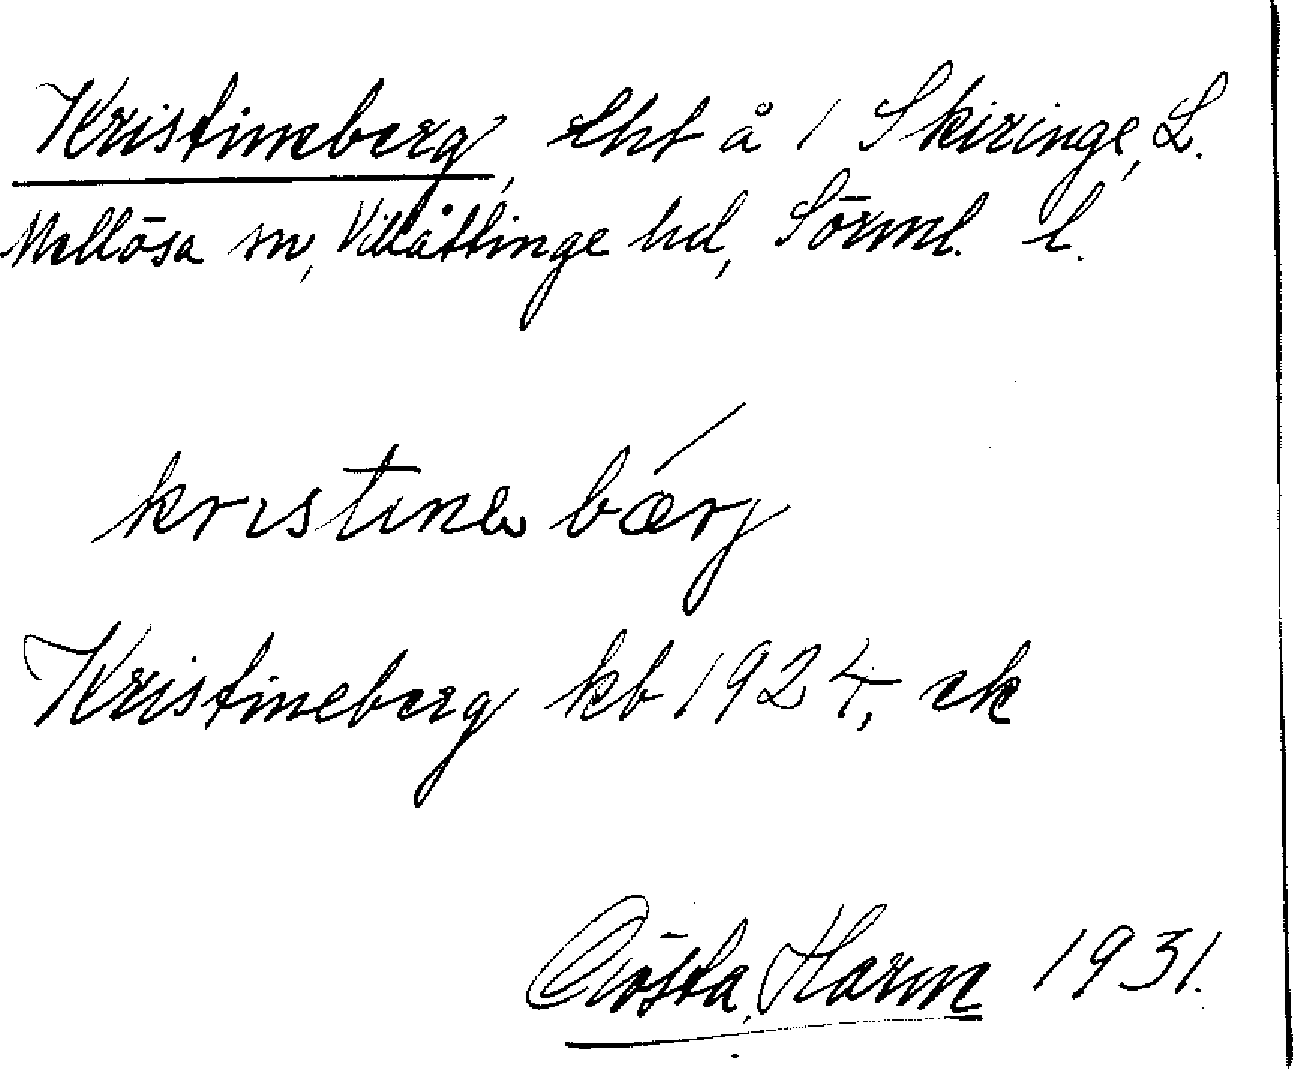 Kristineberg, lht å 1 Skiringe, L.
Mellösa sn, Villåttinge hd, Sörml. l.
kristinə bærj
Kristineberg kb 1924, ek
Gösta Harm 1931.